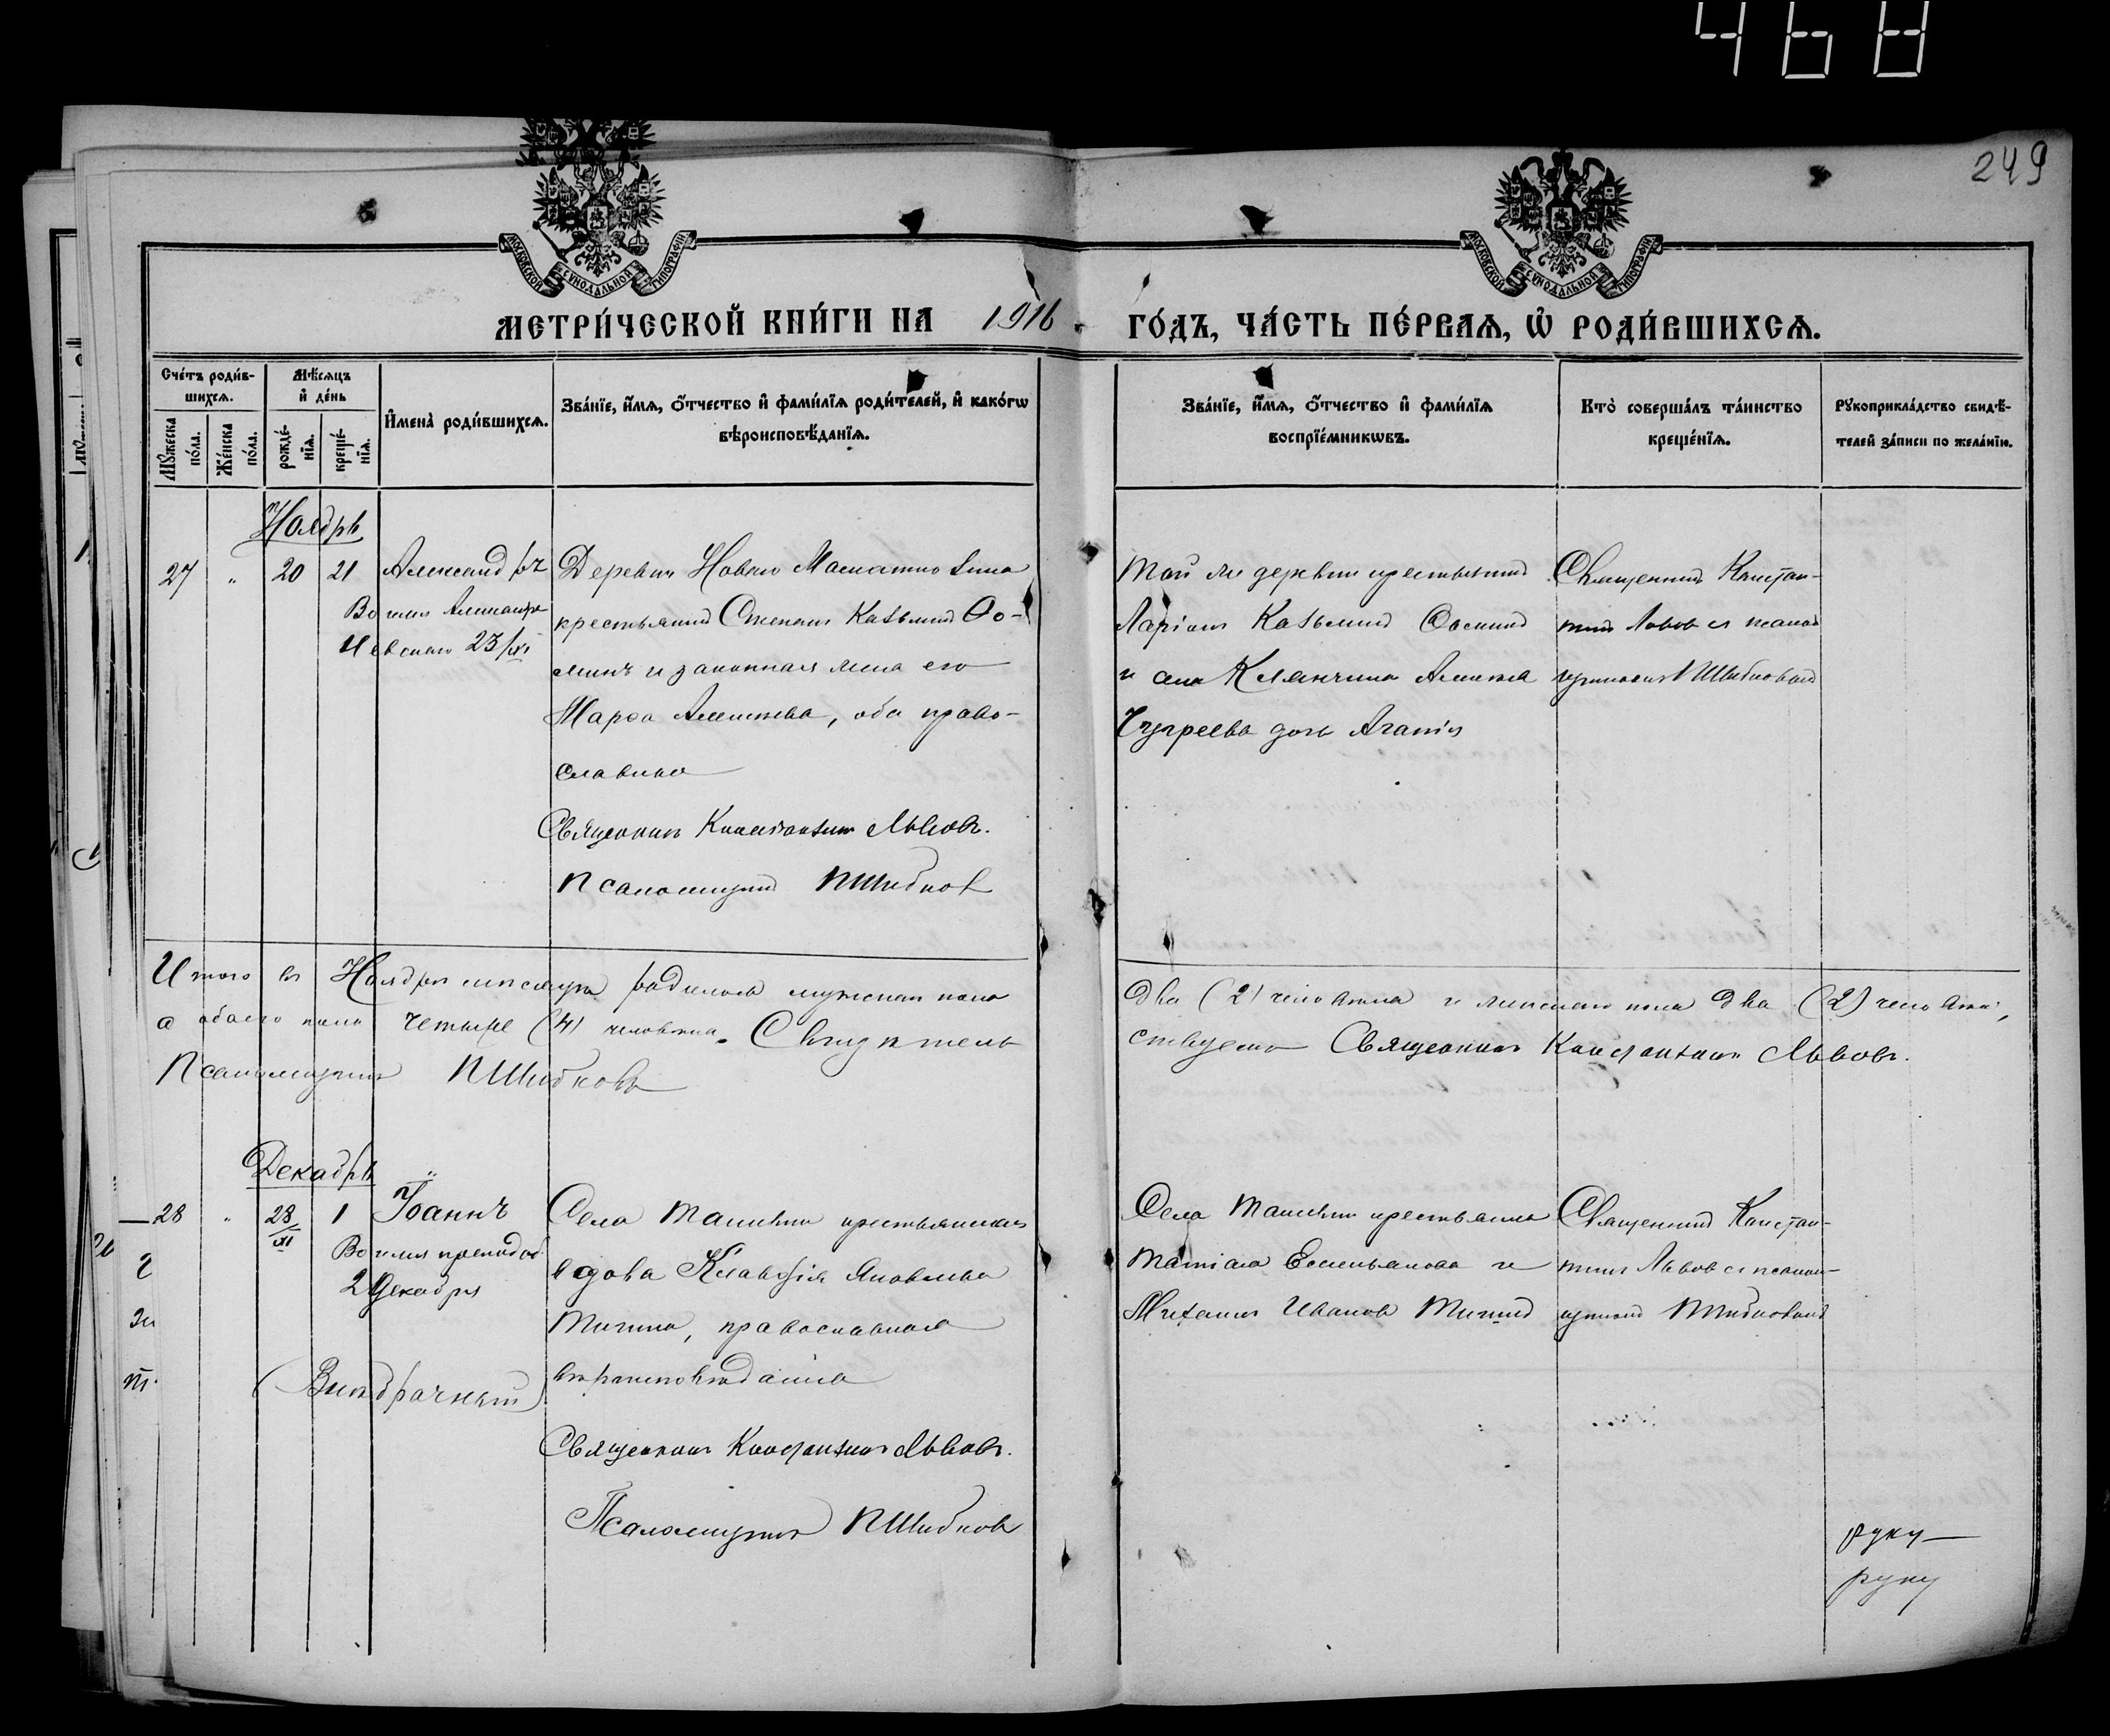 468
249
МОСКОВСКОЙ СѴНОДАЛЬНОЙ ТИПОГРАФІИ
МОСКОВСКОЙ СѴНОДАЛЬНОЙ ТИПОГРАФІИ
МЕТРИ́ЧЕСКОЙ КНИ́ГИ НА 1916 ГО́ДЪ, ЧА́СТЬ ПЕ́РВАЯ, Ѽ РОДИ́ВШИХСЯ.
Сче́тъ роди́в-
шихся.
Мꙋ́жеска по́ла.
Же́нска по́ла.
Мѣ́сяцъ
и҆ де́нь
рожде́-
нїя.
креще́-
нїя.
И҆мена̀ роди́вшихся.
Зва́нїе, и҆́мя, ѻ҆́тчество и҆ фами́лїя роди́телей, и҆ како́гѡ
вѣроисповѣ́данїя.
Зва́нїе, и҆́мя, ѻ҆́тчество и҆ фами́лїя
воспрїе́мникѡвъ.
Кто̀ соверша́лъ та́инство
креще́нїя.
Рꙋкоприкла́дство свидѣ́-
телей за́писи по жела́нїю.
Ноябрь
27 " 20 21 Александръ
Во имя Александра
Невскаго 23/XI
Деревни Новаго
крестьянинъ Степанъ Козьминъ Ѳо-
минъ и законная жена его
Марѳа Алексѣева, оба право-
славные
Священникъ Константинъ Львовъ.
Псаломщикъ П Шибковъ
Той же деревни крестьянинъ
Ларіонъ Козьминъ
и села Клянчина
дочь Агаѳія
Священникъ Констан-
тинъ Львовъ съ псалом-
щикомъ П Шибковымъ
Итого въ Ноябрѣ мѣсяцѣ родилось мужескаго пола
два (2) человѣка и женскаго пола два (2) человѣка,
а обоего пола четыре (4) человѣка. Свидѣтель-
ствуемъ Священникъ Константинъ Львовъ.
Псаломщикъ П Шибковъ
Декабрь
28 " 28/XI 1 Іоаннъ
Во имя преподоб.
2 Декабря
(Внѣбрачный)
Села крестьянская
вдова Клавдія Яковлева
православнаго
вѣроисповѣданія
Священникъ Константинъ Львовъ.
Псаломщикъ П Шибковъ
Села
Емельянова и
Михаилъ Ивановъ
Священникъ Констан-
тинъ Львовъ съ псалом-
щикомъ П Шибковымъ
руку
руку